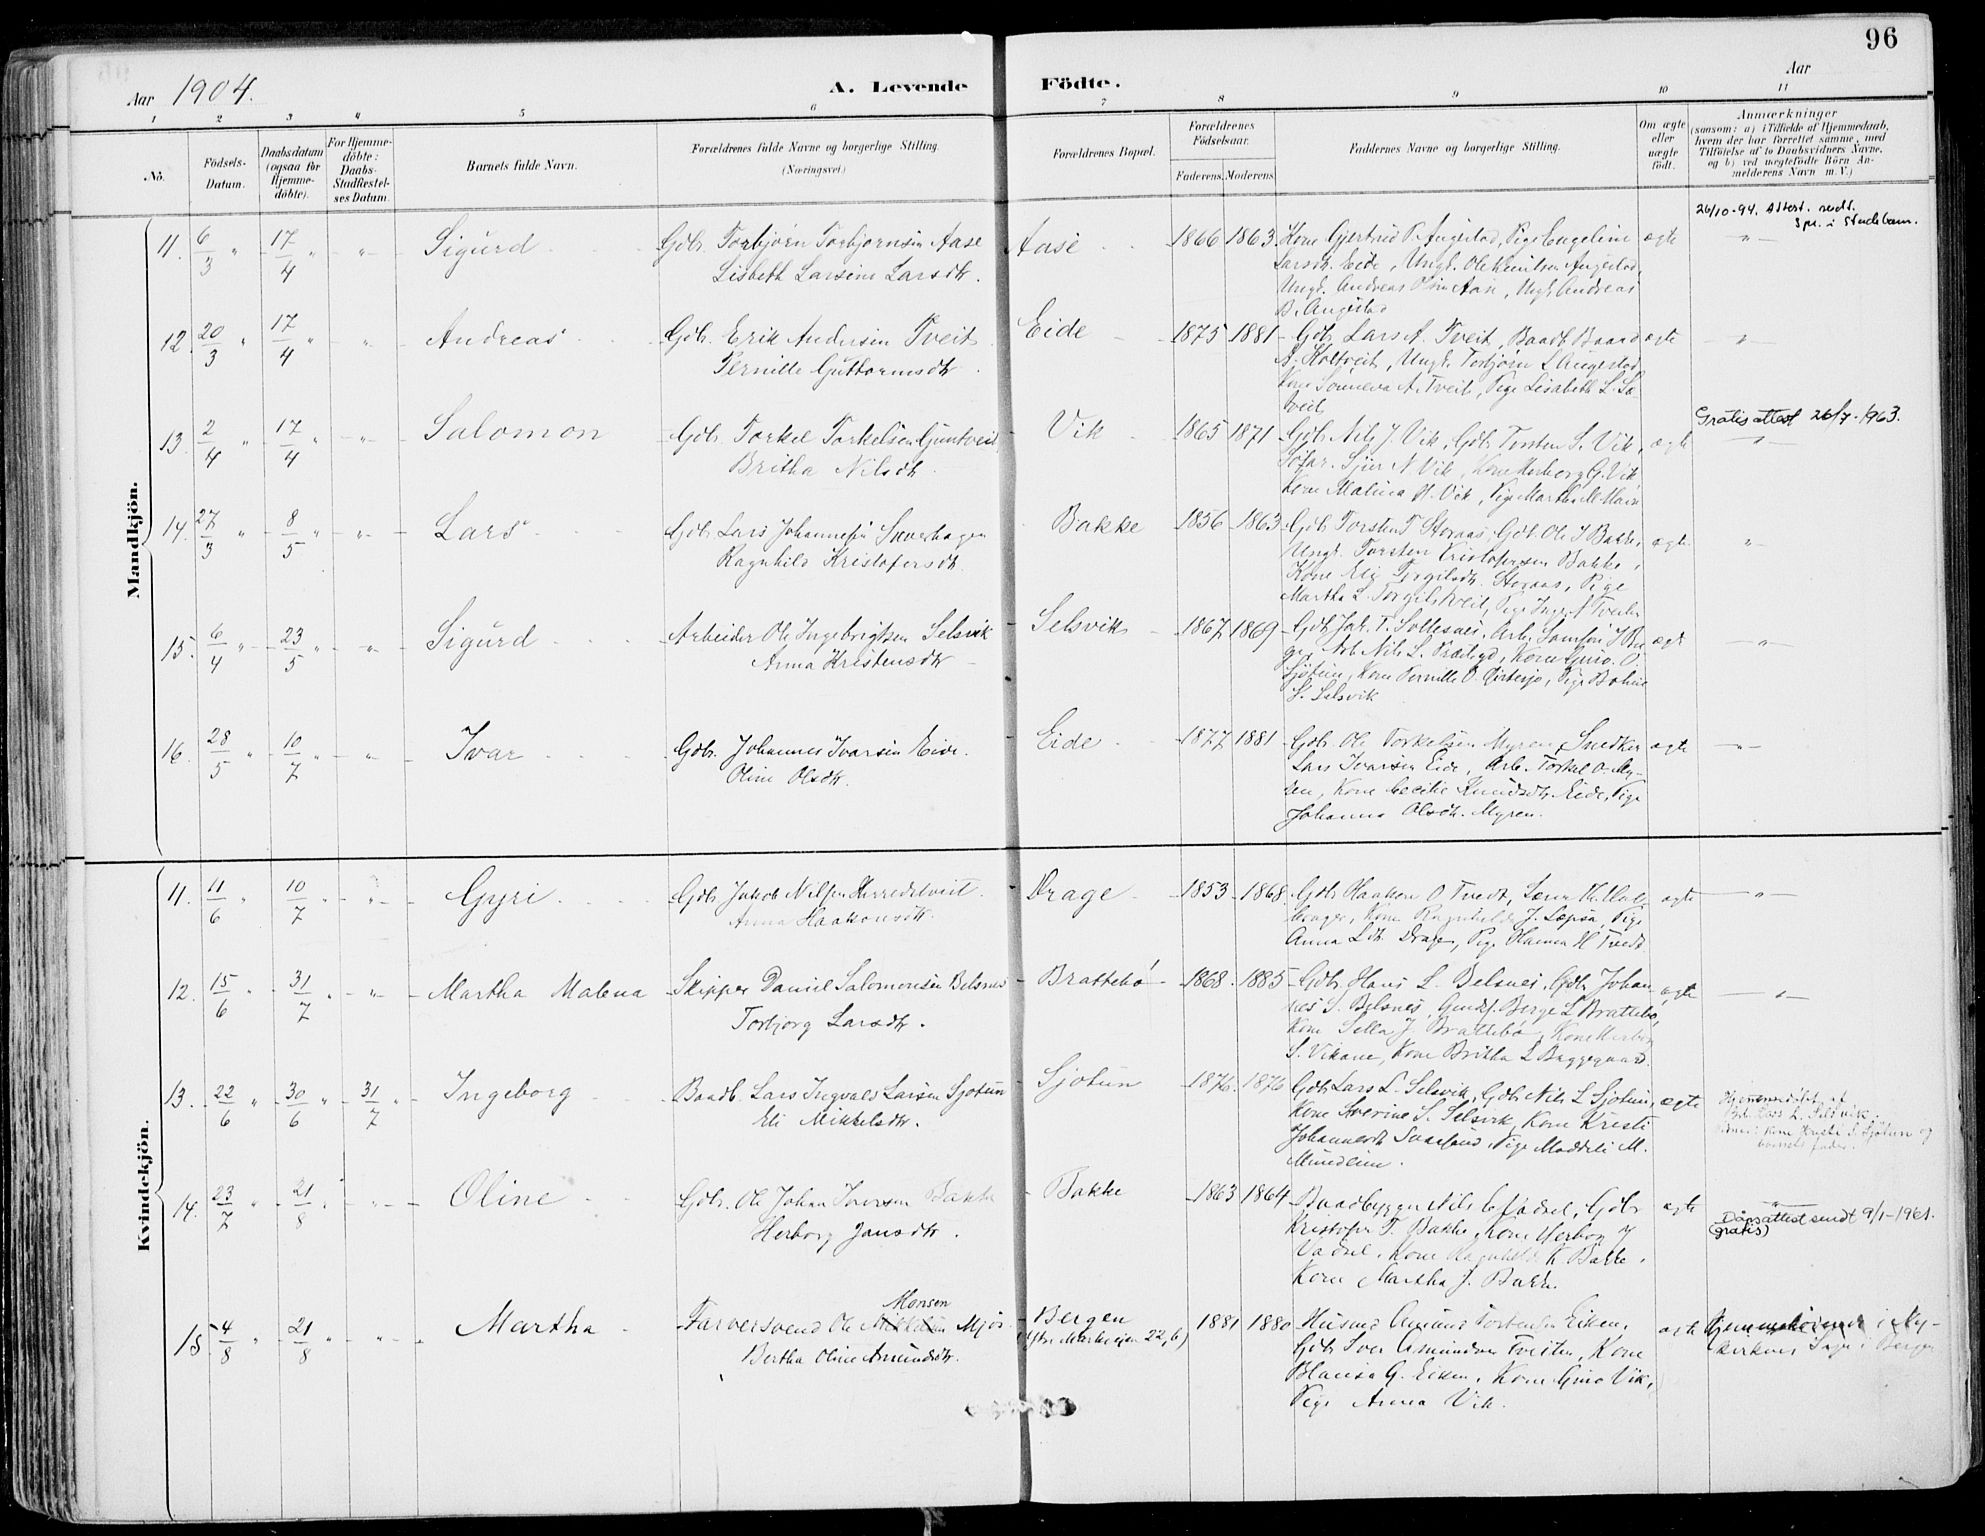 96
Aar 1904.
A. Levende Födte.
Aar
1 2 3 4 5 6 7 8 9 10 11
Nö.
Födsels-Datum.
Daabsdatum (ogsaa for Hjemmedöbte).
For Hjemmedöbte: Daabs-Stadfæstelses Datum.
Barnets fulde Navn.
Forældrenes fulde Navne og borgerlige Stilling. (Næringsvei.)
Forældrenes Bopæl.
Forældrenes Födselsaar.
Faderens. Moderens.
Faddernes Navne og borgerlige Stilling.
Om ægte eller uægte födt.
Anmærkninger
(saasom: a) i Tilfælde af Hjemmedaab, hvem der har forrettet samme, med Tilföielse af to Daabsvidners Navne, og b) ved uegtefödte Börn Anmelderens Navn m. V.)
Mandkjön.
11. 6/3 " 17/4 " " Sigurd Gdb. Torbjørn Torbjørnsen Aase
Lisbeth Larsine Larsdtr.
Aase 1866 1863 Kone Gjertrud P. Augestad, Pige Engeline
Larsdtr. Eide, Ungk. Ole Knutsen Augestad,
Ungk. Andreas Olsen Aase, Ungk. Andreas
B. Augestad
ægte
26/10-94. Attest. sendt.
"
12. 20/3 " 17/4 " " Andreas Gdb. Erik Andersen Tveit
Pernille Guttormsdtr.
Eide 1875 1881 Gdb. Lars A. Tveit, Baadb. Baard
A. Holtveit, Ungk. Torbjørn L. Augestad,
Kone Sønneva A. Tveit, Pige Lisabeth L.
tveit
ægte "
13. 2/4 " 17/4 " " Salomon Gdb. Torkel Torkelsen
Britha Nilsdtr.
Vik 1865 1871 Gdb. Nils J. Vik, Gdb. Torsten S. Vik,
N. Vik, Kone Herborg G. Vik
Kone Malina H. Vik, Pige Martha M.
ægte
Gratis attest 26/7-1963.
"
14. 27/3 " 8/5 " " Lars Gdb. Lars Johannesen Sæverhagen
Ragnhild Kristofersdtr.
Bakke 1856 1863 Gdb. Torsten T. Storaas, Gdb. Ole J. Bakke,
Ungk. Torsten Kristofersen Bakke,
Kone Eli Torgilsdtr. Storaas, Pige
Martha L. Torgilstveit, Pige
ægte "
15. 6/4 " 23/5 " " Sigurd Arbeider Ole Ingebrigtsen Selsvik
Anna Kristensdtr
Selsvik 1867 1869 Gdb. Joh. T. Soltesnes, Arb. Samson
Arb. Nils L. Kone Guro O.
Sjøtun, Kone Pernille O. Pige
S. Selsvik
ægte "
16. 28/5 " 10/7 " " Ivar Gdb. Johannes Ivarsen Eide.
Oline Olsdtr.
Eide 1877 1881 Gdb. Ole Torkelsen Myren, Snedker
Lars Ivarsen Eide, Arb. Torkel O. My-
ren, Kone Cecilie Knudsdtr. Eide, Pige
Johanna Olsdtr. Myren.
ægte "
Kvindekjön.
11. 11/6 " 10/7 " " Gyri Gdb. Jakob Nilsen Herredstveit.
Anna Haakonsdtr.
Drage 1853 1868 Gdb. Haakon O. Tvedt,
Kone Ragnhilde J. Lepsø, Pige
Anna Ldtr. Drage, Pige Hanna H. Tvedt
ægte "
12. 15/6 " 31/7 " " Martha Malena Skipper Daniel Salomonsen Belsnes
Torbjørg Larsdtr.
Brattebø 1868 1885 Gdb. Hans L. Belsnes, Gdb. Johan-
nes S. Belsnes, Berge L. Brattebø,
Kone Sella J. Brattebø, Kone Herbor
S. Vikane, Kone Britha L. Byggegaard.
ægte "
13. 22/6 " 30/6 " 31/7 " Ingeborg Baadb. Lars Ingvald Larsen Sjøtun
Eli Mikkelsdtr.
Sjøtun 1876 1876 Gdb. Lars L. Selsvik, Gdb. Nils L. Sjøtun,
Kone Severine S. Selsvik, Kone Kristi
Johannesdtr. Pige Maddeli M.
Mundheim.
ægte
Hjemmedøbt af
Gdb. Lars L. Selsvik.
Vidner: Kone Kristi S. Sjøtun og
barnets fader.
14. 23/7 " 21/8 " " Oline Gdb. Ole Johan Iversen Bakke
Herborg Jansdtr.
Bakke 1863 1864 Baadbygger Nils Gdb.
Kristofer T. Bakke, Kone Herbor J.
Kone Ragnhilde K. Bakke,
Kone Martha J. Bakke.
ægte
"
Dåpsattest sendt 9/1-1961.
(gratis)
15 4/8 " 21/8 " " Martha Farversvend Ole Monsen Mjøs
Bertha Oline Amundsdtr.
Bergen
22, b)
1881 1880 Husmd. Amund Torbensen Eiken,
Gdb. Iver Amundsen Tveiten, Kone
G. Eiken, Kone Guro Vik,
Pige Anna Vik.
ægte
i Ny-
kirkens Sogn i Bergen